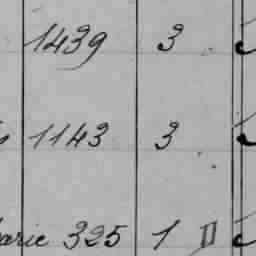 1439 3
1143 3
arie 325 1 II